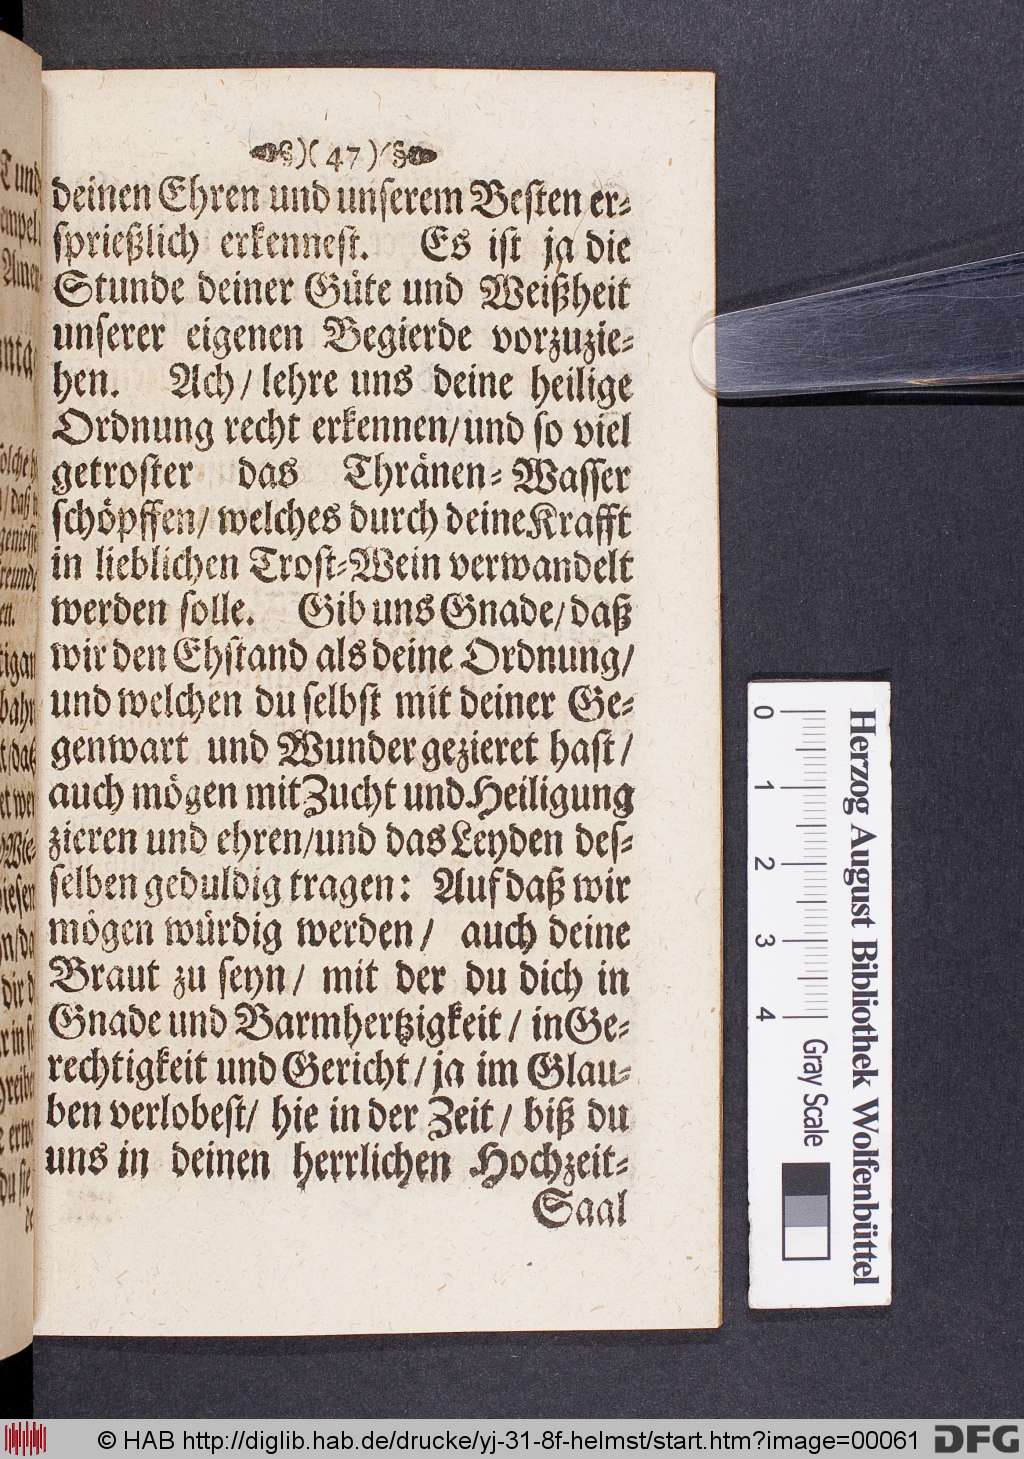 §)( 47 )(§
deinen Ehren und unserem Besten er⸗
sprießlich erkennest. Es ist ja die
Stunde deiner Güte und Weißheit
unserer eigenen Begierde vorzuzie⸗
hen. Ach/ lehre uns deine heilige
Ordnung recht erkennen/ und so viel
getroster das Thränen⸗Wasser
schöpffen/ welches durch deine Krafft
in lieblichen Trost⸗Wein verwandelt
werden solle. Gib uns Gnade/ daß
wir den Ehstand als deine Ordnung/
und welchen du selbst mit deiner Ge⸗
genwart und Wunder gezieret hast/
auch mögen mit Zucht und Heiligung
zieren und ehren/ und das Leyden des⸗
selben geduldig tragen: Auf daß wir
mögen würdig werden/ auch deine
Braut zu seyn/ mit der du dich in
Gnade und Barmhertzigkeit/ in Ge⸗
rechtigkeit und Gericht/ ja im Glau⸗
ben verlobest/ hie in der Zeit/ biß du
uns in deinen herrlichen Hochzeit⸗
Saal
Herzog August Bibliothek Wolfenbüttel
0 1 2 3 4 Gray Scale
© HAB http://diglib.hab.de/drucke/yj-31-8f-helmst/start.htm?image=00061
DFG